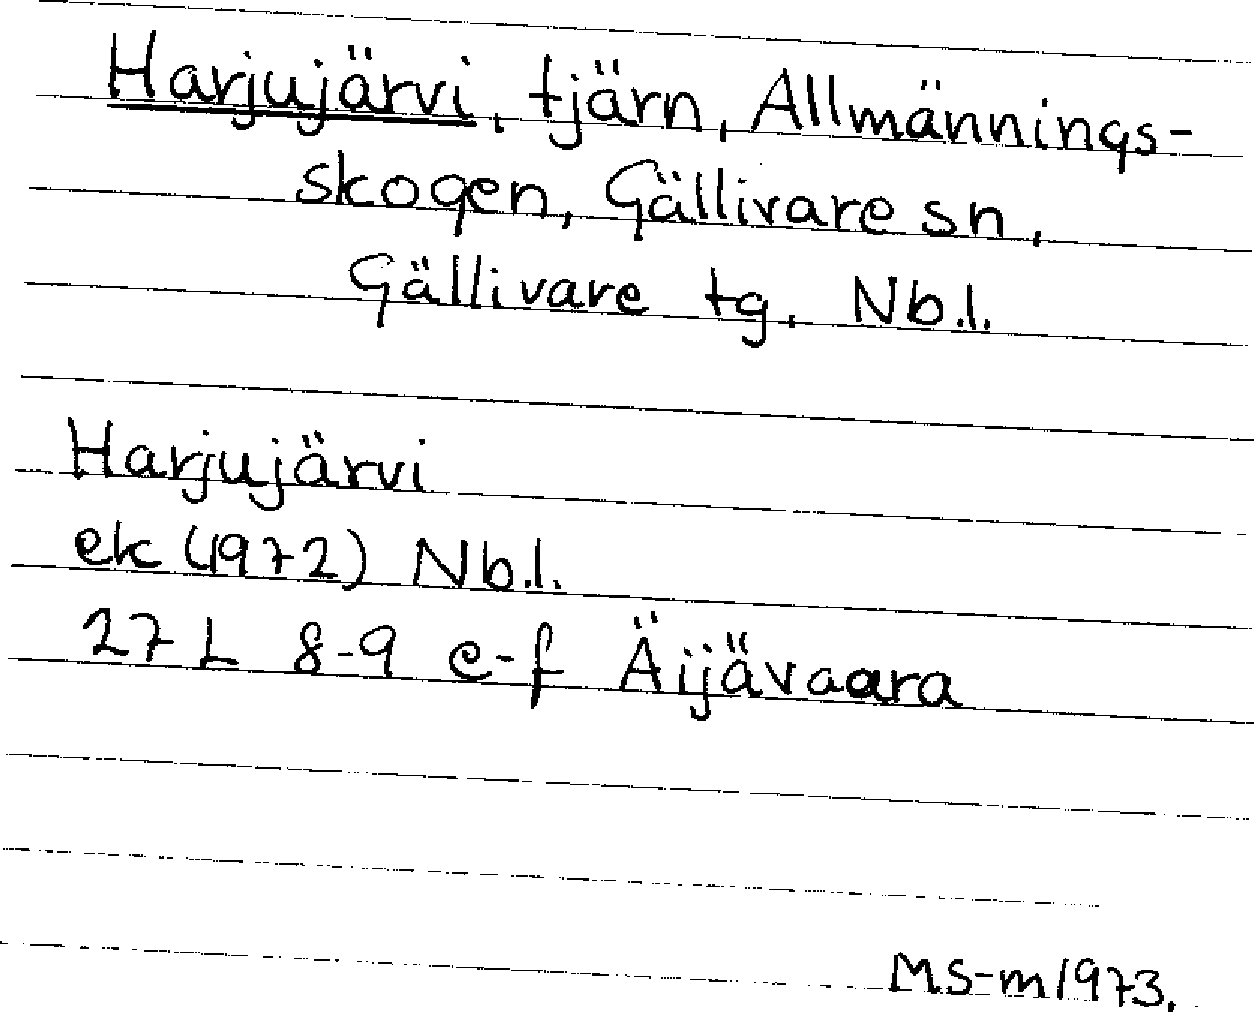 Harjujärvi, tjärn, Allmännings-
skogen, Gällivare sn,
Gällivare tg, Nb.l.
Harjujärvi
ek (1972) Nb.l.
27 L 8-9 e-f Äijävaara
MS-m 1973.